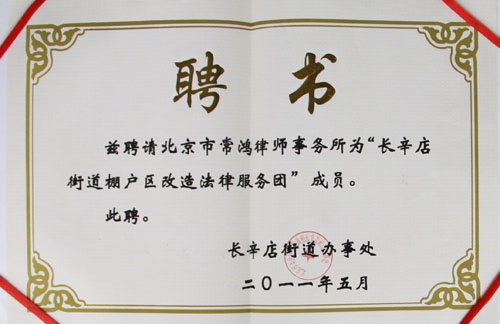 聘书
兹聘请北京市常鸿律师事务所为“长辛店
街道棚户区改造法律服务团”成员。
此聘。
长辛店街道办事处
二〇一一年五月